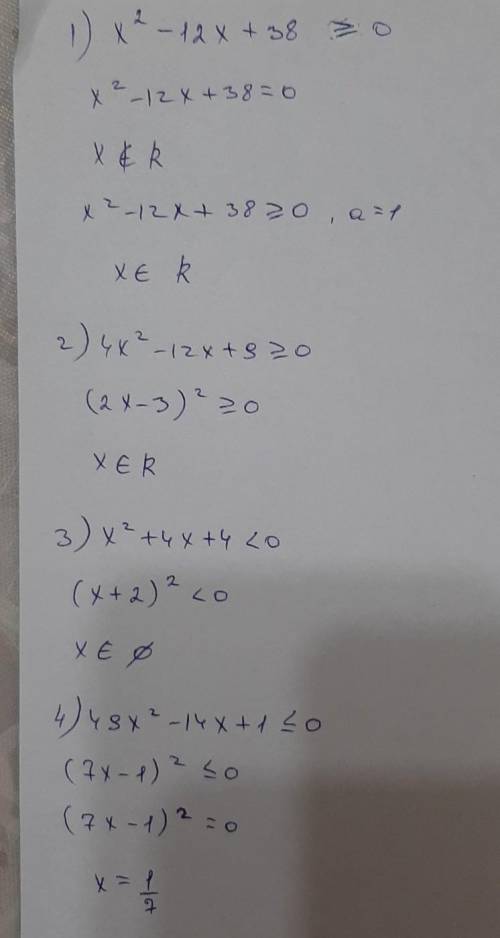 1) x² - 12x + 38 ≥ 0
x² - 12x + 38 = 0
x ∉ R
x² - 12x + 38 ≥ 0 , a = 1
x ∈ R
2) 4x² - 12x + 9 ≥ 0
(2x - 3)² ≥ 0
x ∈ R
3) x² + 4x + 4 < 0
(x + 2)² < 0
x ∈ ∅
4) 49x² - 14x + 1 ≤ 0
(7x - 1)² ≤ 0
(7x - 1)² = 0
x = 1/7